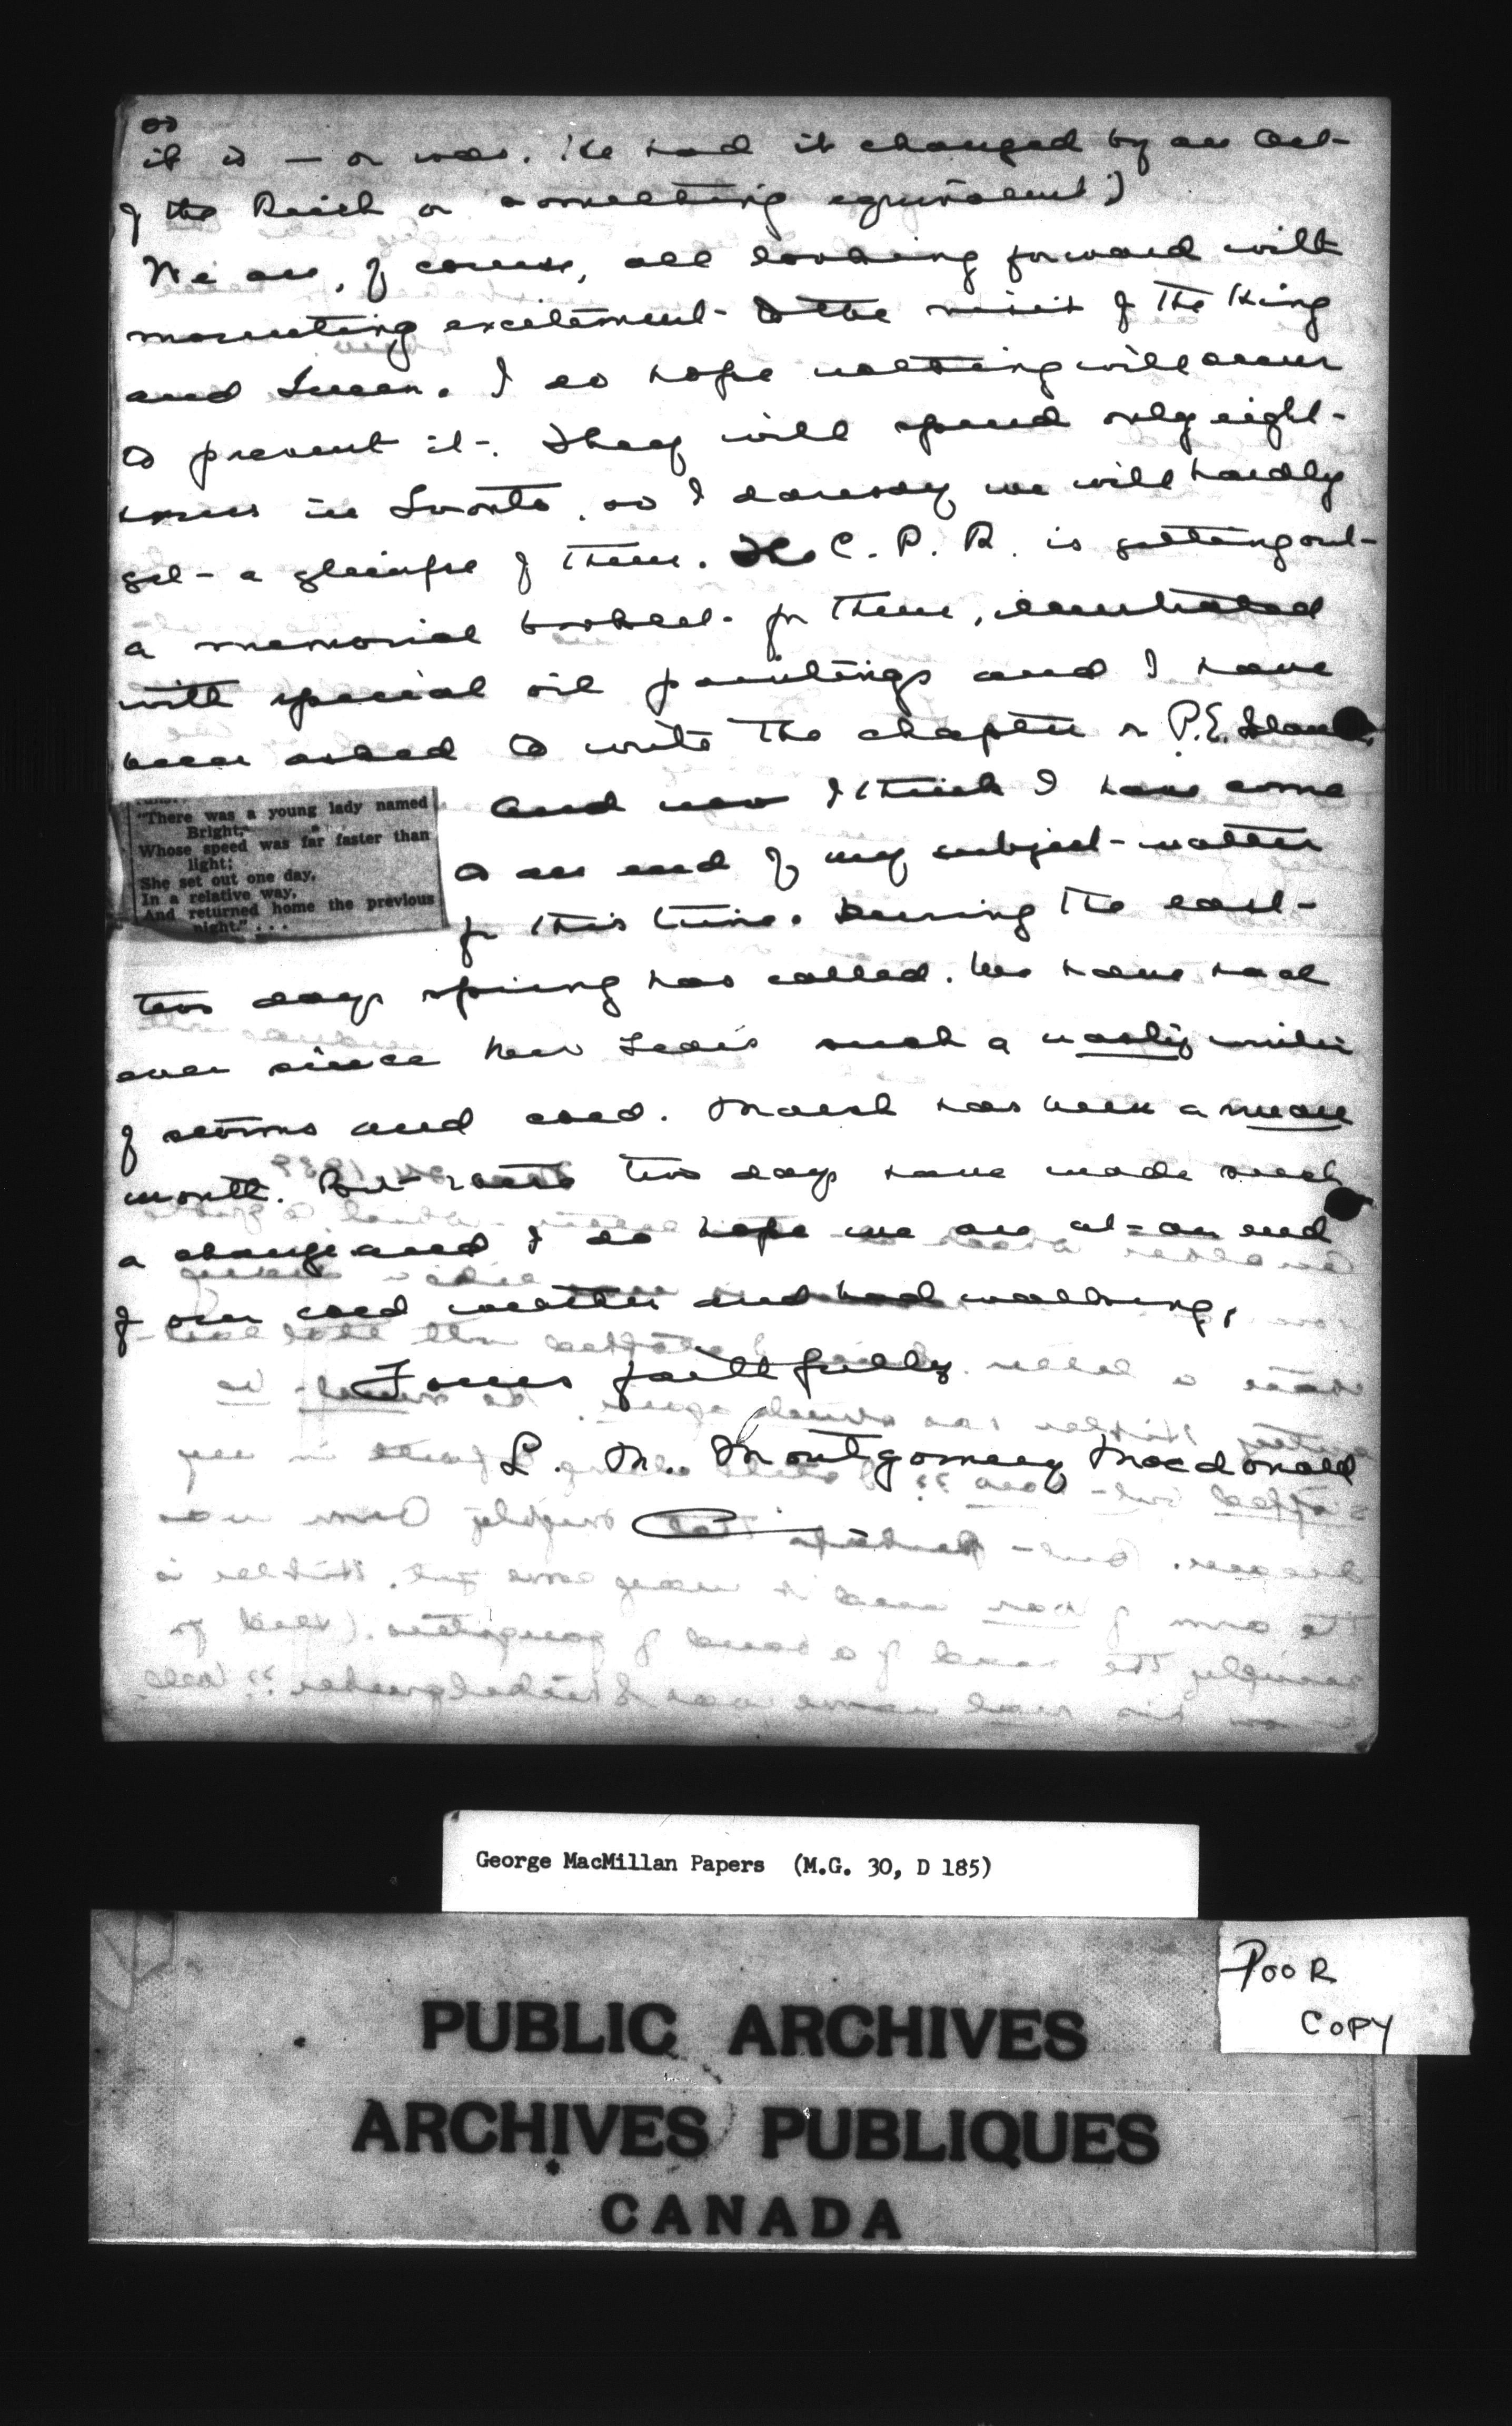 20
it is — or was. He had it changed by an Act
of the Reich or something equivalent.)
We are, of course, all looking forward with
mounting excitement to the visit of the King
and Queen. I do hope nothing will occur
to prevent it. They will spend only eight
hours in Toronto, so I daresay we will hardly
get a glimpse of them. The C. P. R. is getting out
a memorial booklet for them, illustrated
with special oil paintings and I have
been asked to write the chapter on P.E. Island.
And now I think I have come
to an end of my subject-matter
for this time. During the last
"There was a young lady named
Bright,
Whose speed was far faster than
light;
She set out one day,
In a relative way,
And returned home the previous
night." . . .
two days spring has called. We have had
ever since New Year's such a nasty winter
of storms and cold. March has been a mean
month. But these two days have made such
a change and I do hope we are at an end
of our cold weather and bad walking.
Yours faithfully
L. M. Montgomery Macdonald
George MacMillan Papers (M.G. 30, D 185)
POOR
COPY
PUBLIC ARCHIVES
ARCHIVES PUBLIQUES
CANADA